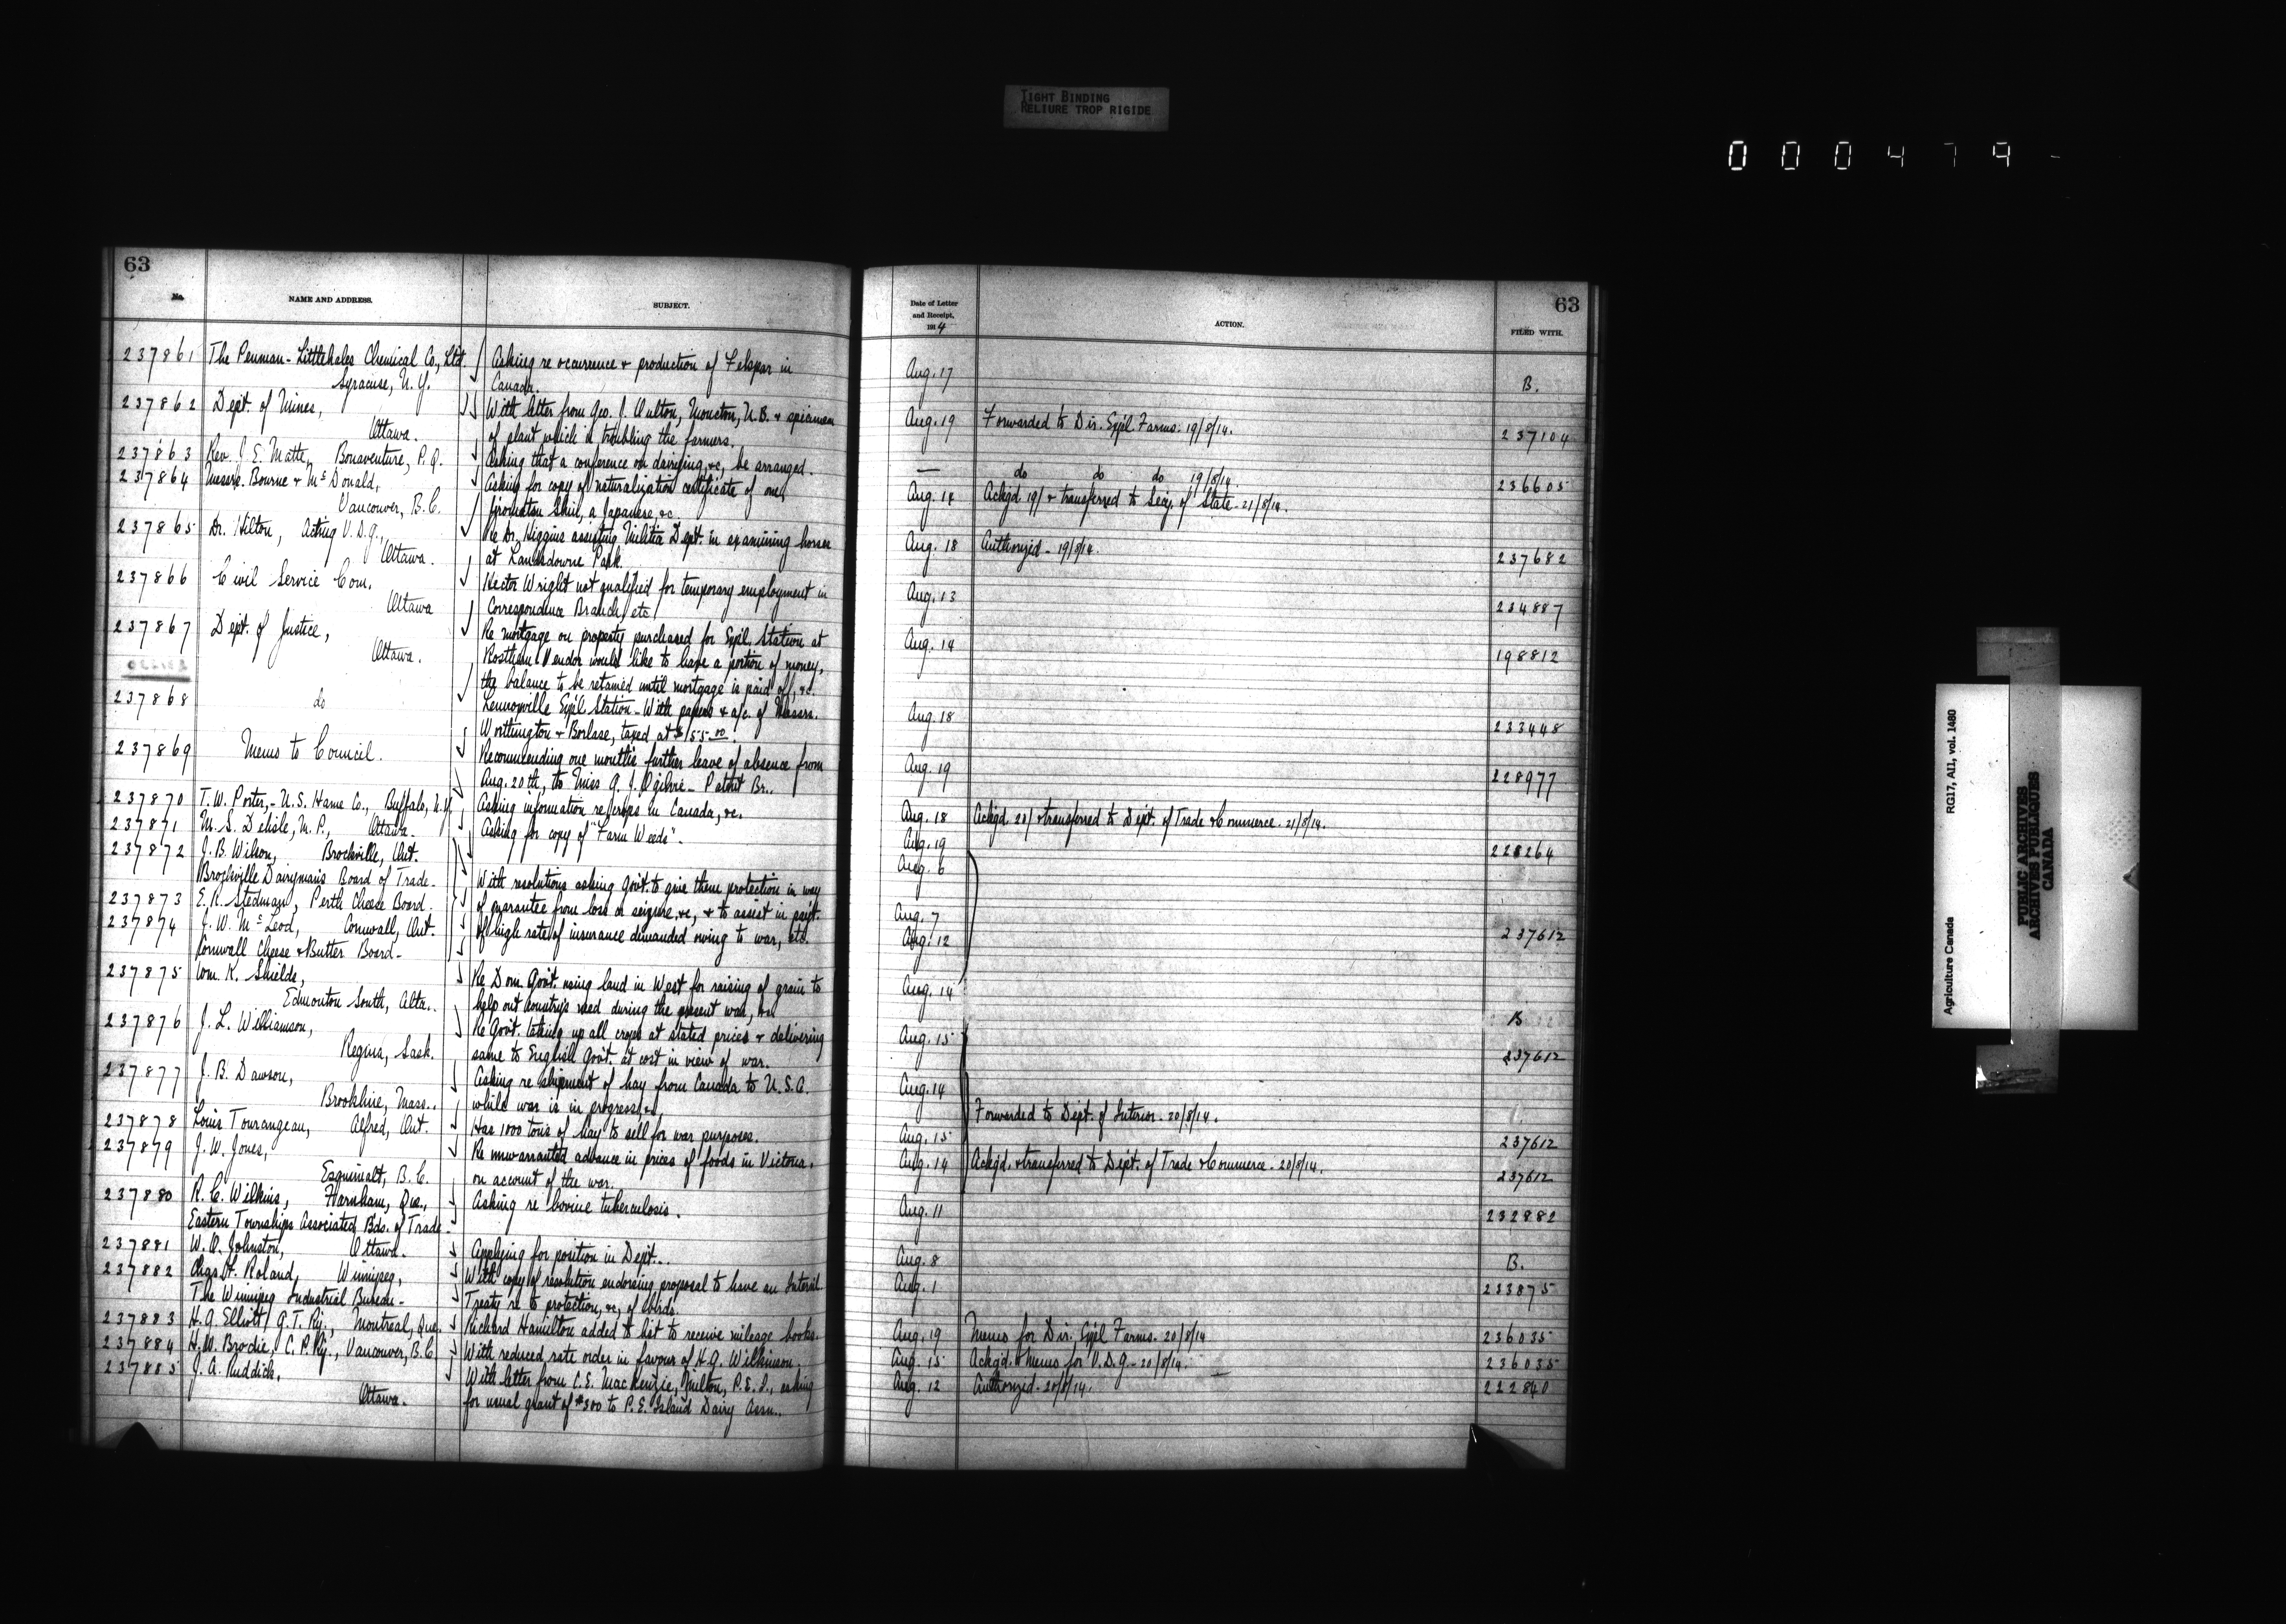 TIGHT BINDING
RELIURE TROP RIGIDE
000479
63
No.
NAME AND ADDRESS.
SUBJECT.
237861 The Penman-Littlehales Chemical Co., Ltd. Asking re occurrence & production of Felspar in
Syracuse, N.Y. Canada.
237862 Dept. of Mines, With letter from Geo. J. Oulton, Moncton, N.B. & specimen
Ottawa. of plant which is troubling the farmers.
237863 Rev. J. E. Matte, Bonaventure, P.Q. Asking that a conference on dairying, &c, be arranged.
237864 Messrs. Bourne & McDonald, Asking for copy of naturalization certificate of one,
Vancouver, B.C. Shin, a Japanese, &c.
237865 Dr. Hilton, Acting V.D.G., Re Dr. Higgins assisting Militia Dept. in examining horses
Ottawa. at Lansdowne Park.
237866 Civil Service Com. Hector Wright not qualified for temporary employment in
Ottawa Correspondence Branch, etc
237867 Dept. of Justice, Re mortgage on property purchased for Expl. Station at
Ottawa. Rosthern. Vendor would like to have a portion of money,
the balance to be retained until mortgage is paid off, &c.
237868 do Lennoxville Expl. Station - With papers & a/c. of Messrs.
Worthington & Borlase, taxed at $155.00.
237869 Memo to Council. Recommending one month's further leave of absence from
Aug. 20th, to Miss A. J. Ogilvie - Patent Br..
237870 T.W. Porter, - U.S. Hame Co., Buffalo, N.Y. Asking information re crops in Canada, &c.
237871 M. S. Delisle, M.P., Ottawa. Asking for copy of "Farm Weeds".
237872 J. B. Wilson, Brockville, Ont.
Brockville Dairyman's Board of Trade. With resolutions asking Govt. to give them protection in way
237873 E. R. Stedman, Perth Cheese Board. of guarantee from loss or seizure, &c, & to assist in paỹt.
237874 J. W. McLeod, Cornwall, Ont. of high rate of insurance demanded owing to war, etc.
Cornwall Cheese & Butter Board -
237875 Wm. K. Shields, Re Dom. Govt. using land in West for raising of grain to
Edmonton South, Alta.. help out country's need during the present war, &c.
237876 J. L. Williamson, Re Govt. taking up all crops at stated prices & delivering
Regina, Sask. same to English Govt. at cost in view of war.
237877 J. B. Dawson, Asking re shipment of hay from Canada to U.S.A.
Brookline, Mass.. while war is in progress, &c.
237878 Louis Tourangeau, Alfred, Ont. Has 1000 tons of hay to sell for war purposes.
237879 J. W. Jones, Re unwarranted advance in prices of foods in Victoria,
Esquimalt, B.C. on account of the war.
237880 R. C. Wilkins, Farnham, Que., Asking re bovine tuberculosis.
Eastern Townships Associated Bds. of Trade.
237881 W. A. Johnston, Ottawa. Applying for position in Dept..
237882 Chas. F. Roland, Winnipeg, With copy of resolution endorsing proposal to have an Internl.
The Winnipeg Industrial Bureau - Treaty re to protection, &c, of birds.
237883 H. A. Elliott, G.T. Ry., Montreal, Que. Richard Hamilton added to list to receive mileage books.
237884 H. W. Brodie, C.P. Ry., Vancouver, B.C. With reduced rate order in favour of H. G. Wilkinson.
237885 J. A. Ruddick, With letter from C.E. MacKenzie, Milton, P.E.I., asking
Ottawa. for usual grant of $300 to P.E. Island Dairy Assn..
63
Date of Letter
and Receipt,
1914
ACTION.
FILED WITH.
Aug. 17 B.
Aug. 19 Forwarded to Dir. Expl. Farms. 19/8/14. 237104
— do do do 19/8/14. 236605
Aug. 14 Ackgd. 19/ & transferred to Secy. of State - 21/8/14.
Aug. 18 Authorized - 19/8/14. 237682
Aug. 13 234887
Aug. 14 198812
Aug. 18 233448
Aug. 19 228977
Aug. 18 Ackgd. 20/ & transferred to Dept. of Trade & Commerce. 21/8/14.
Aug. 19 228264
Aug. 6
Aug. 7
Aug. 12 237612
Aug. 14 B
Aug. 15 237612
Aug. 14 Forwarded to Dept. of Interior - 20/8/14.
Aug. 15 237612
Aug. 14 Ackgd. & transferred to Dept. of Trade & Commerce - 20/8/14. 237612
Aug. 11 232882
Aug. 8 B.
Aug. 1 233875
Aug. 19 Memo for Dir. Expl. Farms - 20/8/14 236035
Aug. 15 Ackgd. & memo for V.D.G. - 20/8/14. 236035
Aug. 12 Authorized - 20/8/14. 222840
Agriculture Canada RG17, AII, vol. 1480
PUBLIC ARCHIVES
ARCHIVES PUBLIQUES
CANADA